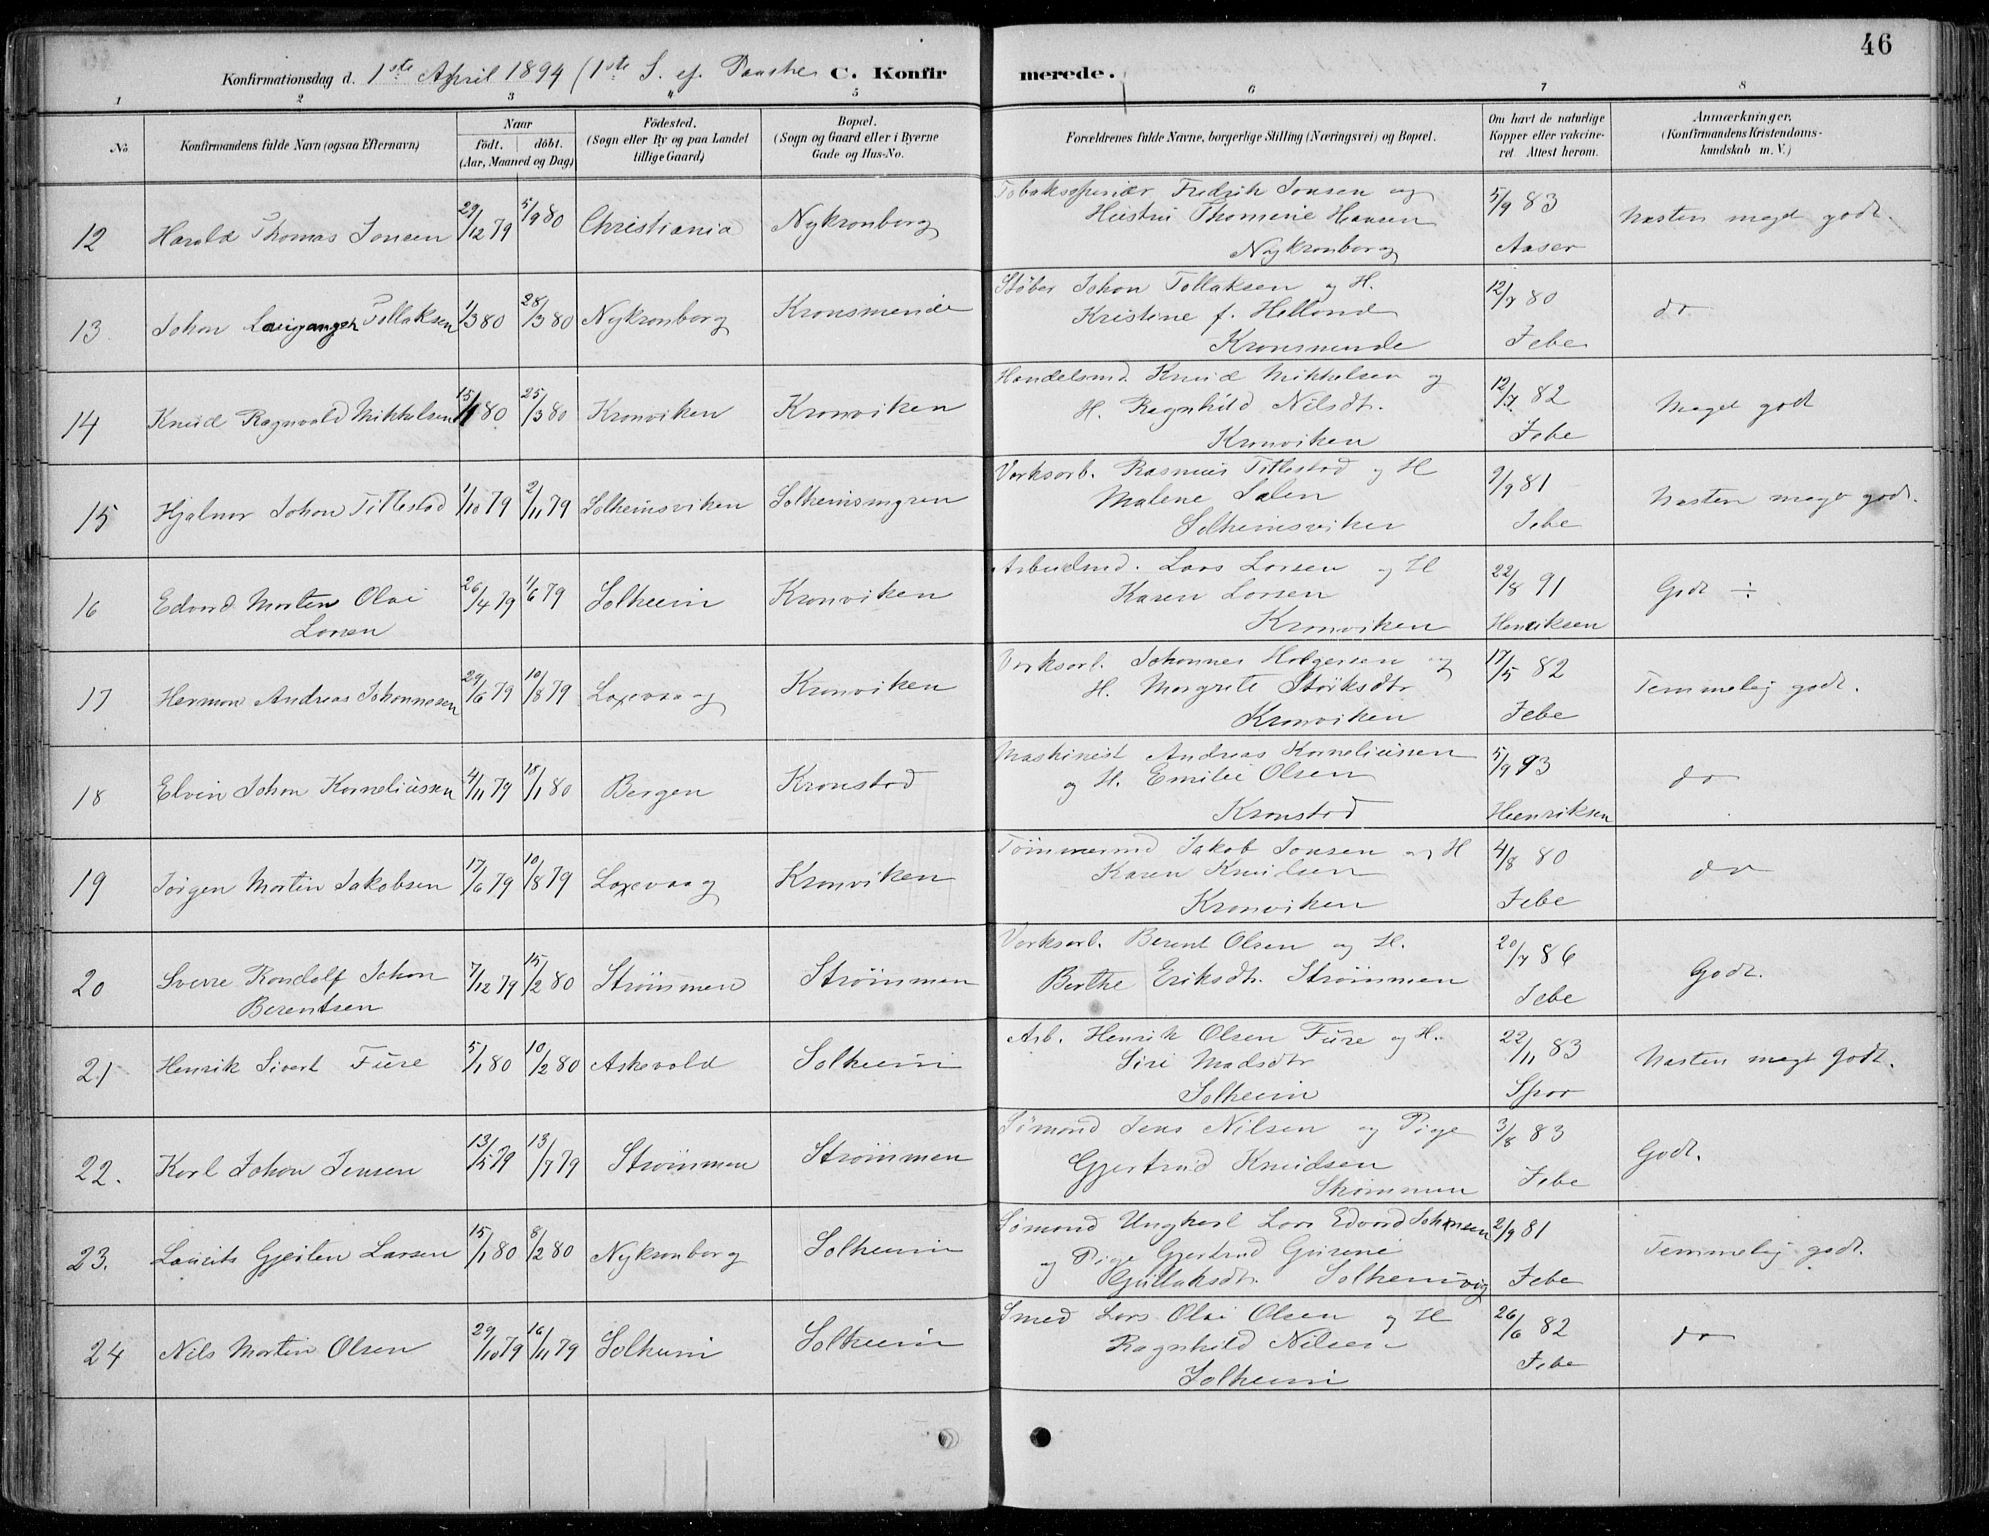 46
Konfirmationsdag d. 1ste April 1894 (1ste S. ef. Paaske C. Konfirmerede.
1 2 3 4 5 6 7 8
No
Konfirmandens fulde Navn (ogsaa Efternavn)
Naar
født. døbt.
(Aar, Maaned og Dag)
Fødested.
(Sogn eller By og paa Landet
tillige Gaard)
Bopæl.
(Sogn og Gaard eller i Byerne
Gade og Hus-No.
Forældrenes fulde Navne, borgerlige Stilling (Næringsvei) og Bopæl.
Om havt de naturlige
Kopper eller vakcine-
ret. Attest herom.
Anmærkninger.
(Konfirmandens Kristendoms-
kundskab m. V.)
12 Harald Thomas Jonsen 29/12 79 5/9 80 Christiania Nykronborg
Fredrik Jonsen og
Hustru Thomine Hansen
Nykronborg
5/9 83
Aaser
Næsten meget godt.
13 Johan Tollaksen 1/3 80 28/3 80 Nykronborg Kronsminde
Støber Johan Tollaksen og H.
Kristine f. Helland
Kronsminde
12/7 80
Jebe
do
14 Knud Ragnvald Mikkelsen 15/1 80 25/3 80 Kronviken Kronviken
Handelsmd. Knud Mikkelsen og
H. Ragnhild Nilsdt.
Kronviken
12/7 82
Jebe
Meget godt
15 Hjalmar Johan Titlestad 1/10 79 2/11 79 Solheimsviken Solheimsmyren
Værksarb. Rasmus Titlestad og H
Malene Salen
Solheimsviken
2/9 81
Jebe
Næsten meget godt.
16 Edvard Morten Olai
Larsen
26/4 79 1/6 79 Solheim Kronviken
Arbeidsmd. Lars Larsen og H
Karen Larsen
Kronviken
22/8 91
Henriksen
Godt ÷
17 Herman Andreas Johannesen 29/6 79 10/8 79 Laxevaag Kronviken
Værksarb. Johannes Holgersen og
H. Margrete Størksdtr
Kronviken
17/5 82
Jebe
Temmelig godt.
18 Elvin Johan Korneliussen 4/11 79 18/1 80 Bergen Kronstad
Maskinist Andreas Korneliussen
og H. Emilie Olsen
Kronstad
5/9 93
Henriksen
do
19 Jørgen Martin Jakobsen 17/6 79 10/8 79 Laxevaag Kronviken
Tømmermd Jakob Jonsen og H
Karen Knudsen
Kronviken
4/8 80
Jebe
do
20 Sverre Randolf Johan
Berentsen
7/12 79 15/2 80 Strømmen Strømmen
Værksarb. Berent Olsen og H.
Berthe Eriksdt. Strømmen
20/7 86
Jebe
Godt.
21 Henrik Sivert Fure 5/1 80 10/2 80 Askevold Solheim
Arb. Henrik Olsen Fure og H.
Siri Madsdtr
Solheim
22/11 83
Spor
Næsten meget godt.
22. Karl Johan Jensen 13/5 79 13/7 79 Strømmen Strømmen
Sømand Jens Nilsen og Pige
Gjertrud Knudsen
Strømmen
3/8 83
Jebe
Godt.
23. Laurits Gjerlen Larsen 15/1 80 8/2 80 Nykronborg Solheim
Sømand Ungkarl Lars Edvard Johnsen
og Pige Gjertrud Gurine
Gullaksdt. Solheimsvig
2/9 81
Jebe
Temmelig godt.
24 Nils Martin Olsen 29/10 79 16/11 79 Solheim Solheim
Smed Lars Olai Olsen og H
Ragnhild Nilsen
Solheim
26/6 82
Jebe
do